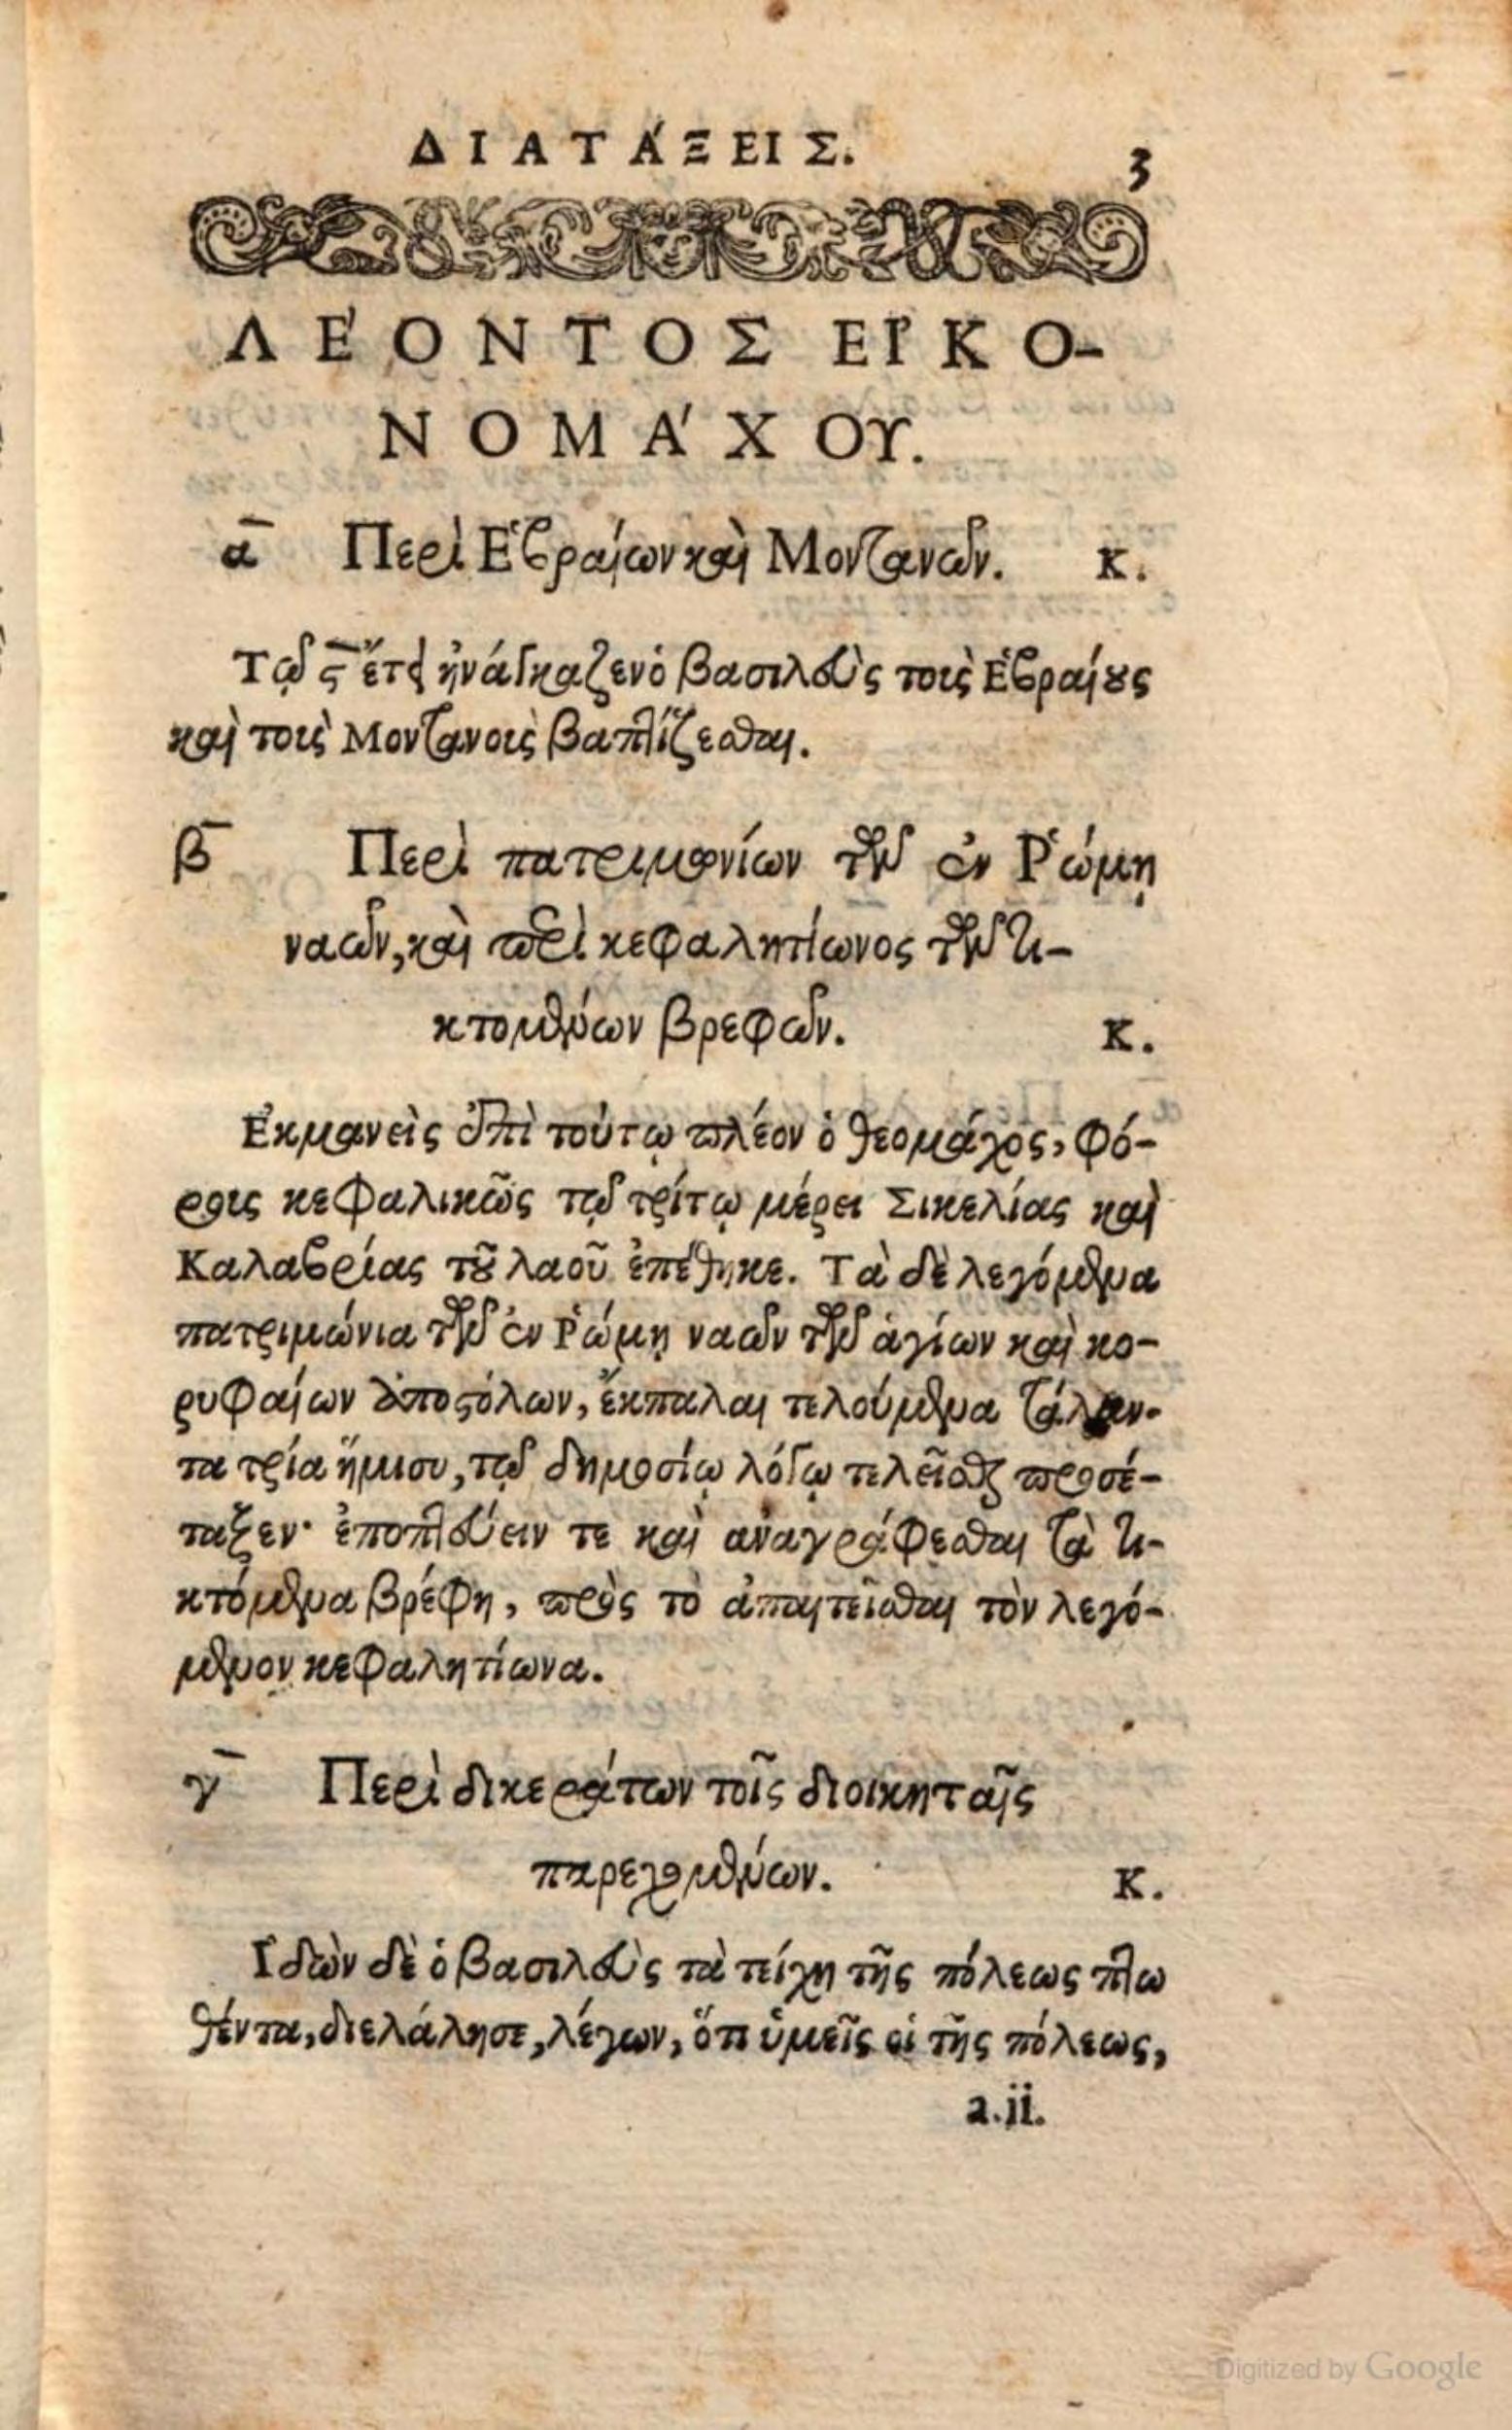 ΔΙΑΤΆΞΕΙΣ. 3
ΛΈΟΝΤΟΣ ΕἸΚΟ-
ΝΟΜΆΧΟΥ.
α Περὶ Ἑβραίων καὶ Μοντανῶν. Κ.
Τῷ ϛ ἔτει ἠνάγκαζεν ὁ βασιλεὺς τοὺς Ἑβραίους
καὶ τοὺς Μοντανοὺς βαπτίζεσθαι.
β Περὶ πατριμονίων τῶν ἐν Ῥώμῃ
ναῶν, καὶ περὶ κεφαλητίωνος τῶν τι-
κτομένων βρεφῶν. Κ.
Ἐκμανεὶς ἐπὶ τούτῳ πλέον ὁ θεομάχος, φό-
ροις κεφαλικῶς τῷ τρίτῳ μέρει Σικελίας καὶ
Καλαβρίας τοῦ λαοῦ ἐπέθηκε. Τὰ δὲ λεγόμενα
πατριμώνια τῶν ἐν Ῥώμῃ ναῶν τῶν ἁγίων καὶ κο-
ρυφαίων ἀποστόλων, ἔκπαλαι τελούμενα τάλαν-
τα τρία ἥμισυ, τῷ δημοσίῳ λόγῳ τελεῖσθαι προσέ-
ταξεν· ἐποπτεύειν τε καὶ ἀναγράφεσθαι τὰ τι-
κτόμενα βρέφη, πρὸς τὸ ἀπαιτεῖσθαι τὸν λεγό-
μενον κεφαλητίωνα.
γ Περὶ δικεράτων τοῖς διοικηταῖς
παρεχομένων. Κ.
Ἰδὼν δὲ ὁ βασιλεὺς τὰ τείχη τῆς πόλεως πτω
θέντα, διελάλησε, λέγων, ὅτι ὑμεῖς οἱ τῆς πόλεως,
a.ii.
Digitized by Google